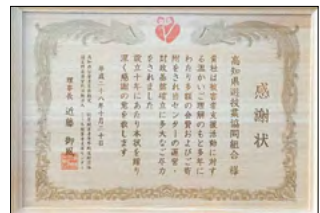 感謝状
高知県遊技業協同組合 様
貴社は被害者支援活動に対す
る温かいご理解のもと多年に
わたり多額の会費およびご寄
附をされ当センターの運営・
財政基盤確立に多大なご尽力
をされました
設立十年にあたり本状を贈り
深く感謝の意を表します
平成二十八年十月三十日
理事長 近藤